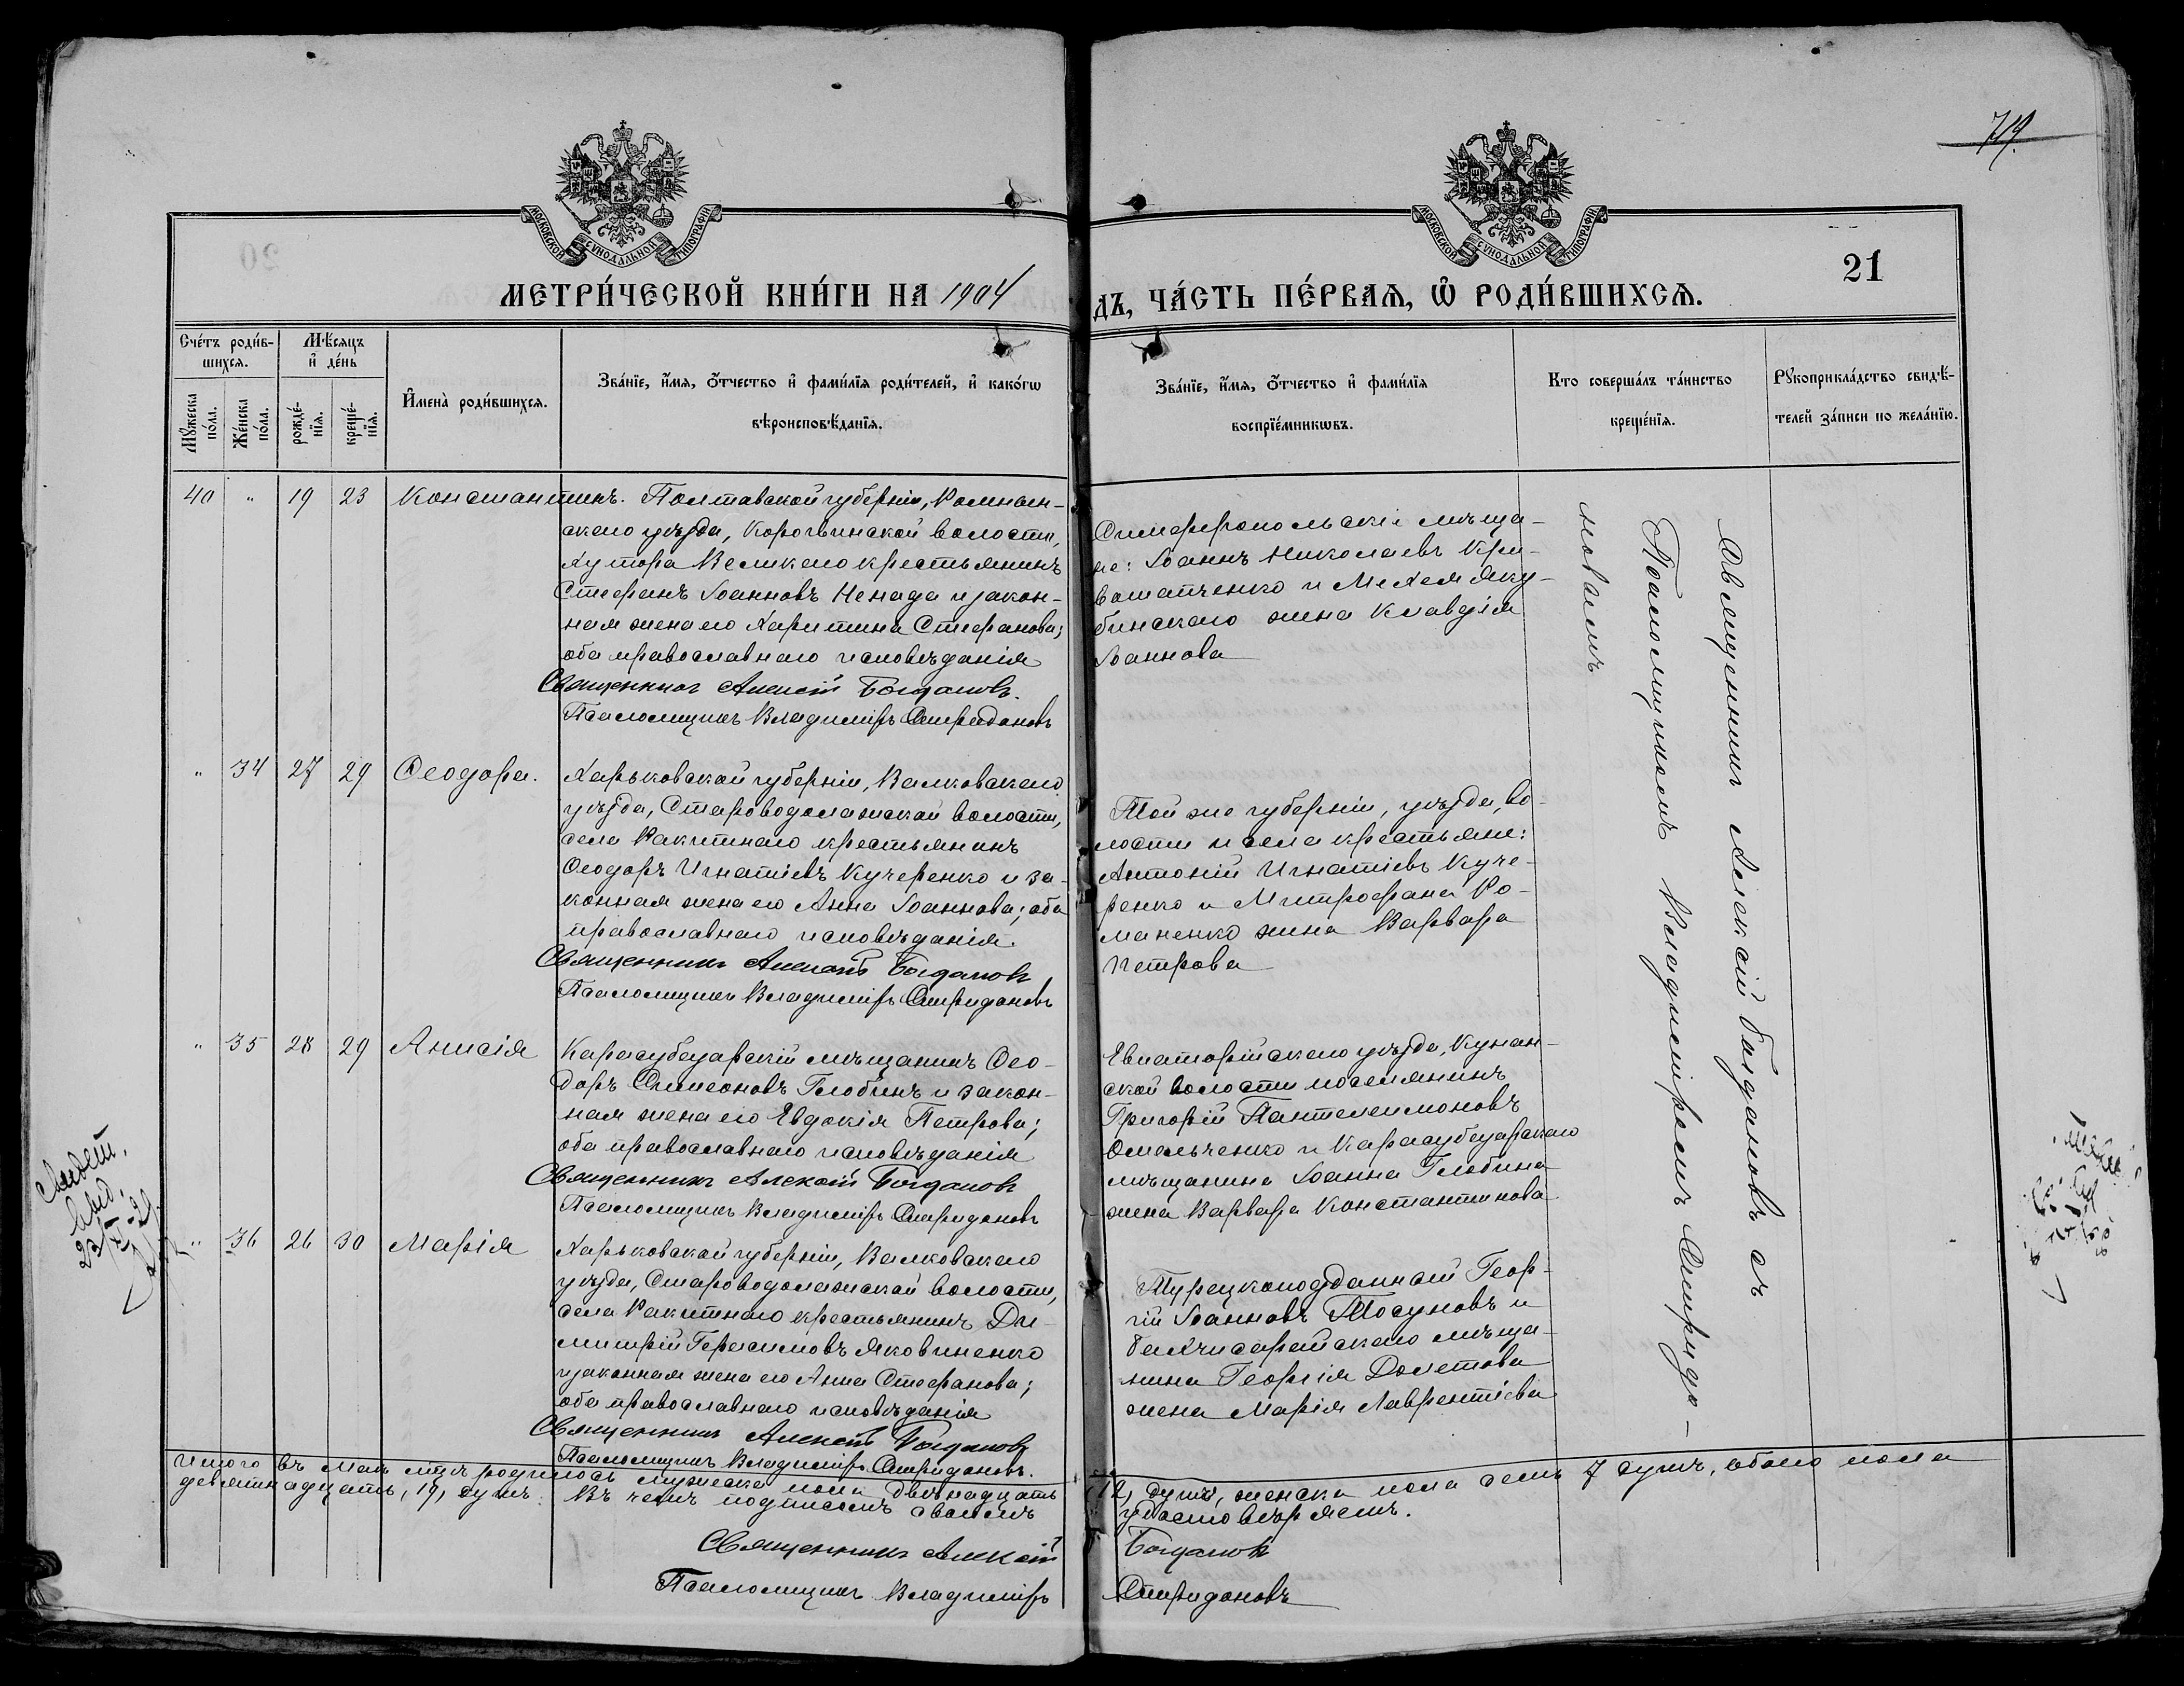 719.
МОСКОВСКОЙ СѴНОДАЛЬНОЙ ТИПОГРАФІИ
МОСКОВСКОЙ СѴНОДАЛЬНОЙ ТИПОГРАФІИ
21
МЕТРИ́ЧЕСКОЙ КНИ́ГИ НА 1904
ДЪ, ЧА́СТЬ ПЕ́РВАѦ, Ѡ҆ РОДИ́ВШИХСѦ.
Сче́тъ роди́в-
шихсѧ.
Мꙋжеска по́ла.
Же́нска по́ла.
Мѣ́сѧцъ
и҆ де́нь
рожде́-
нїѧ.
креще́-
нїѧ.
И҆мена̀ роди́вшихсѧ.
Зва́нїе, и҆́мѧ, ѻ҆́тчество и҆ фами́лїѧ роди́телей, и҆ како́гѡ
вѣроисповѣ́данїѧ.
Зва́нїе, и҆́мѧ, ѻ҆́тчество и҆ фами́лїѧ
воспрїе́мникѡвъ.
Кто соверша́лъ та́инство
креще́нїѧ.
Рꙋкоприкла́дство свидѣ́-
телей за́писи по жела́нїю.
40 " 19 23 Константинъ. Полтавской губерніи, Роменн-
скаго уѣзда, Коровинской волости,
хутора Великаго крестьянинъ
Стефанъ Іоанновъ Ненада и закон-
ная жена его Харитина Стефанова;
оба православнаго исповѣданія
Священникъ Алексій Богдановъ.
Псаломщикъ Владиміръ Спиридоновъ
Симферопольскіе мѣща-
не: Іоаннъ Николаевъ Кри-
вошапченко и
бинскаго жена Клавдія
Іоаннова
" 34 27 29 Ѳеодора. Харьковской губерніи, Валковскаго
уѣзда, Староводолажской волости,
села Ракитнаго крестьянинъ
Ѳеодоръ Игнатіевъ Кучеренко и за-
конная жена его Анна Іоаннова; оба
православнаго исповѣданія.
Священникъ Алексій Богдановъ
Псаломщикъ Владиміръ Спиридоновъ
Той же губерніи, уѣзда, во-
лости и села крестьяне:
Антоній Игнатіевъ Куче-
ренко и Митрофана Ро-
маненко жена Варвара
Петрова
" 35 28 29 Анисія Карасубазарскій мѣщанинъ Ѳео-
доръ Симеоновъ Глобинъ и закон-
ная жена его Евдокія Петрова;
оба православнаго исповѣданія
Священникъ Алексій Богдановъ
Псаломщикъ Владиміръ Спиридоновъ
Евпаторійскаго уѣзда, Кунан-
ской волости поселянинъ
Григорій Пантелеимоновъ
Омельченко и Карасубазарскаго
мѣщанина Іоанна Глобина
жена Варвара Константинова
" 36 26 30 Марія Харьковской губерніи, Валковскаго
уѣзда, Староводолажской волости,
села Ракитнаго крестьянинъ Ди-
митрій Герасимовъ Яковиненко
и законная жена его Анна Стефанова;
оба православнаго исповѣданія
Священникъ Алексій Богдановъ
Псаломщикъ Владиміръ Спиридоновъ.
Турецкоподданный Геор-
гій Іоанновъ Тосуновъ и
бахчисарайскаго мѣща-
нина Георгія Долетова
жена Марія Лаврентіева
Священникъ Алексій Богдановъ съ
Псаломщикомъ Владиміромъ Спиридо-
новымъ
Итого въ маѣ мцѣ родилось мужеска пола двѣнадцать 12, душъ, женска пола семь 7 душъ, обоего пола
девятнадцать, 19, душъ. Въ чемъ подписомъ своимъ удостовѣряемъ.
Священникъ Алексій Богдановъ
Псаломщикъ Владиміръ Спиридоновъ